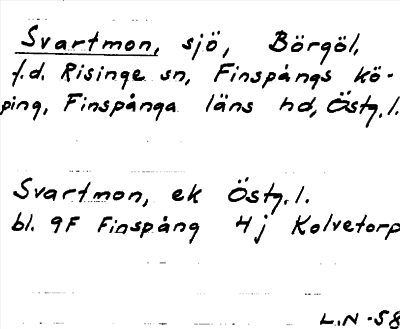 Svartmon, sjö, Börgöl,
f.d. Risinge sn, Finspångs kö-
ping, Finspånga läns hd, Östg.l.
Svartmon, ek Östg.l.
bl. 9F Finspång 4j Kolvetorp
L.N -58